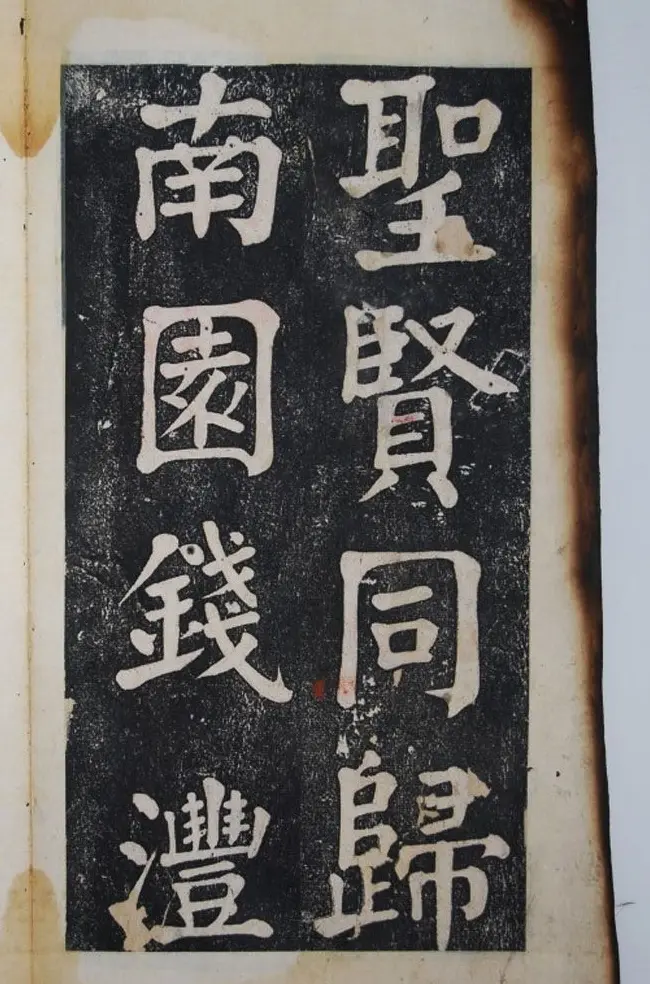 聖賢同歸
南園錢灃